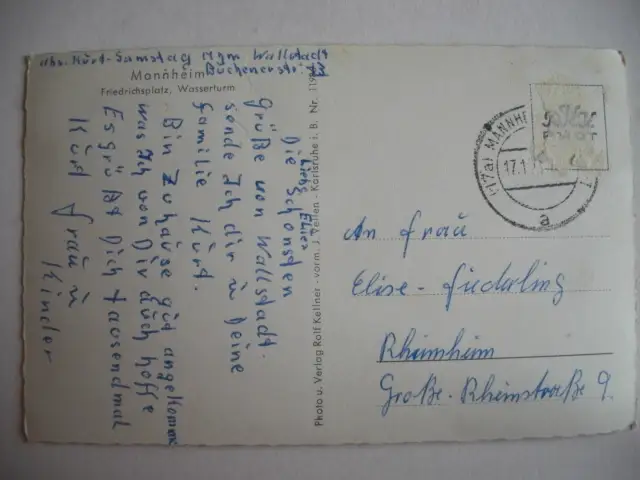 Abs. Kurt-Samstag Mhm Wallstadt
Buchenerstr.
Mannheim
Friedrichsplatz, Wasserturm
Liebe Elise
Die schönsten
Grüße von Wallstadt.
sende Ich dir u Deine
familie Kurt.
Bin Zuhause gut angekommen
was Ich von Dir auch hoffe
Es grüßt Dich tausendmal
Kurt frau u
Kinder
Photo u. Verlag Rolf Kellner - vorm. J. Velten - Karlsruhe i. B. Nr.
(17a) MANNHE
17.1
a
An Frau
Elise-
Rheinheim
Große-Rheinstraße 9.